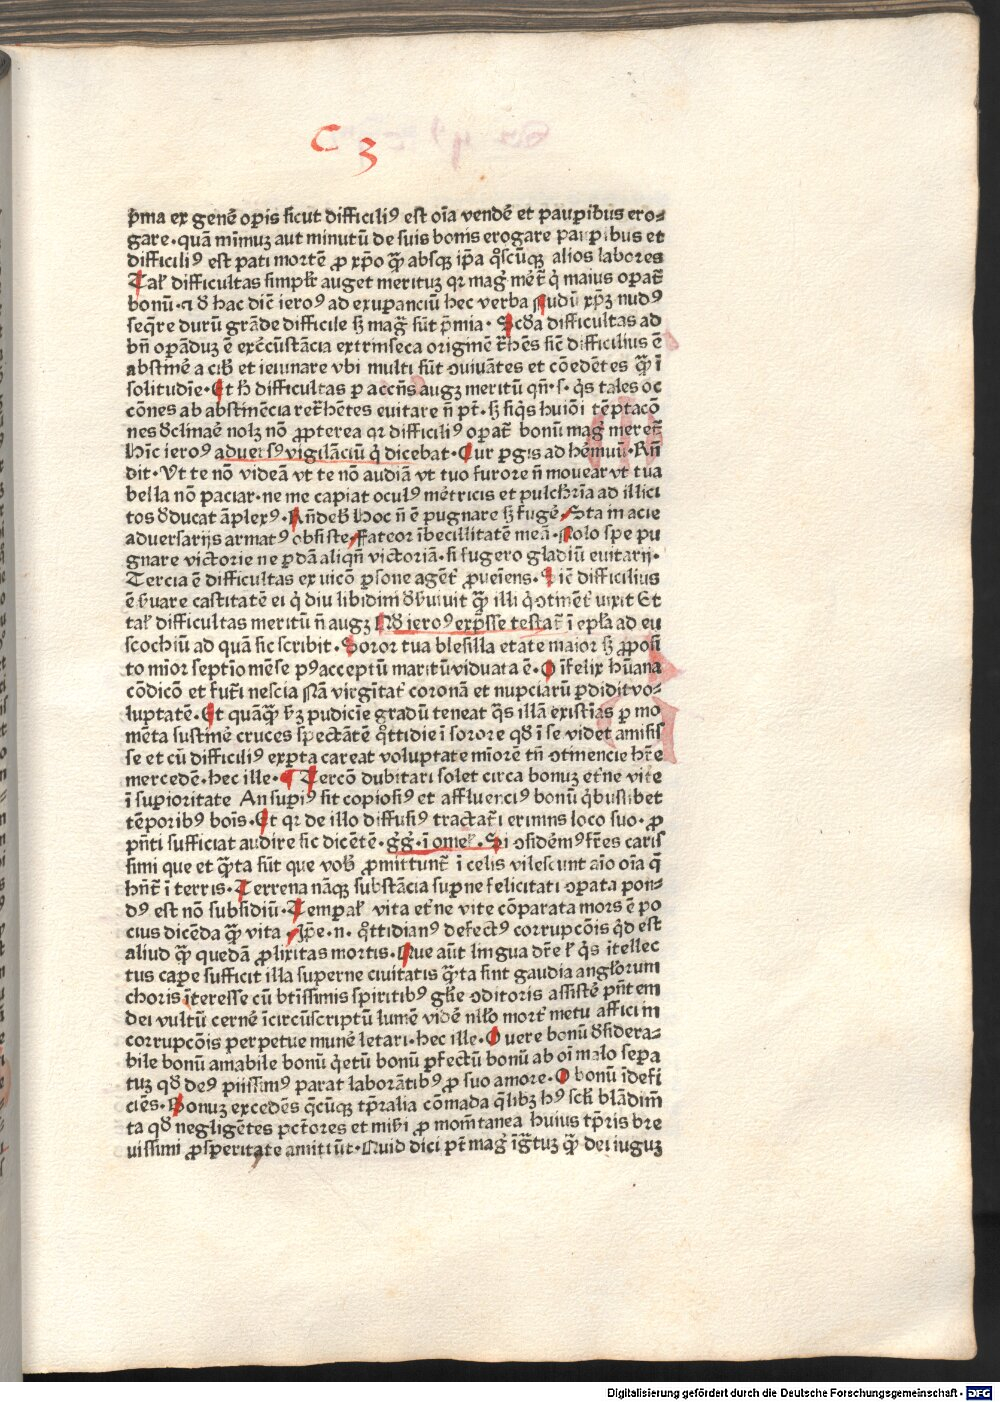 C 3
p̄ma ex genē opis sicut difficili⁹ est oīa vendē et paup̱ibus ero⸗
gare·quā mīmuȝ aut minutū de suis bonis erogare paup̱ibus et
difficili⁹ est pati mortē ꝓ xp̄o ꝙ̄ absqȝ ip̄a q̊scūqȝ alios labores
Tal̕ difficultas simpl̕r auget merituȝ qr mag̕ mēt̄ q̇ maius oꝑat̄
bonū·⁊ ꝺ hac dic̄ iero⁹ ad exuꝑanciū hec verba Nudū xp̄ȝ nud⁹
seq̄re durū grāde difficile sȝ maḡ sūt p̄mia· Scꝺa difficultas ad
bn̄ oꝑāduȝ ē ex c̄cūstācia extrinseca originē t̄hēs sic̄ difficilius ē
abstinē a cib̕ et ieiunare vbi multi sūt ↄuiuātes et cōedētes ꝙ̄ ī
solitudīe·Et h̄ difficultas ꝑ accn̄s augȝ meritū qn̄·s·q̄s tales oc
cōnes ab abstinēcia ret̄hētes euitare n̄ pt̄·sȝ siq̄s huiōi tēptacō
nes ꝺclinaē nolȝ nō ꝓpterea qr difficili⁹ oꝑat̄ bonū mag̕ meret̄
hīc iero⁹ aduers⁹ vigilāciū q̇ dicebat·Cur ꝑgis ad hēmuū·Rn̄
dit·Vt te nō videā vt te nō audiā vt tuo furore n̄ mouear vt tua
bella nō paciar·ne me capiat ocul⁹ mētricis et pulcħria ad illici
tos ꝺducat āplex⁹·Rn̄deb̕ hoc n̄ ē pugnare sȝ fugē·Sta in acie
aduersarijs armat⁹ obsiste·Fateor ībecillitatē meā·Nolo spe pu
gnare victorie ne ꝑdā aliqn̄ victoriā·si fugero gladiū euitarī·
Tercia ē difficultas ex uicō ꝑsone agēt̄ ꝓueīens·Sic̄ difficilius
ē ẜuare castitatē ei q̇ diu libidini ꝺẜuiuit ꝙ̄ illi q̇ ↄtinēt̄ vixit Et
tal̕ difficultas meritū n̄ augȝ Nꝺ iero⁹ exp̄sse testat̄ ī epl̕a ad eu
stochiū ad quā sic scribit·Soror tua blesilla etate maior sȝ ꝓposi
to mīor septīo mēse p⁹acceptū maritū viduata ē·O īfelix hūana
cōdicō et fut̄i nescia Nā virgītat̄ coronā et nupciarū ꝑdidit vo⸗
luptatē·Et quāꝙ̄ ẜȝ pudicīe gradū teneat q̄s illā existīas ꝑ mo
mēta sustinē cruces spectātē q̊ttidie ī sorore qꝺ ī se videt amisis
se et cū difficili⁹ exꝑta careat voluptate mīorē tn̄ ↄtinencie hr̄e
mercedē·hec ille·¶ Tercō dubitari solet circa bonuȝ et̄ne vite
ī suꝑioritate An suꝑi⁹ sit copiosi⁹ et affluenci⁹ bonū q̇buslibet
tēporib⁹ boīs·Et qr de illo diffusi⁹ tractat̄i erimus loco suo·ꝓ
pn̄ti sufficiat audire sic dicētē·g̕g̕·ī omel̕·Si ↄsidēm⁹ fr̄es caris
simi que et ꝙ̄ta sūt que vob̕ ꝓmittunt̄ ī celis vilescunt aīo oīa q̄
hn̄t ī terris·Terrena nāqȝ substācia suꝑne felicitati ↄꝑata pon⸗
d⁹ est nō subsidiū·Tempal̕ vita et̄ne vite cōparata mors ē po
cius dicēda ꝙ̄ vita·Ip̄e·n·q̊ttidian⁹ defect⁹ corrupcōis qd est
aliud ꝙ̄ quedā ꝓlixitas mortis·Que aūt lingua dr̄e l̕ q̄s ītellec
tus caꝑe sufficit illa superne ciuitatis ꝙ̄ta sint gaudia angl̕orum
choris īteresse cū btīssimis spiritib⁹ gl̕ie ↄditoris assistē pn̄tem
dei vultū cernē īcircūscriptū lumē vidē nll̕o mort̄ metu affici in
corrupcōis perpetue munē letari·hec ille·O vere bonū ꝺsidera⸗
bile bonū amabile bonū q̇etū bonū ꝑfectū bonū ab oī malo sepa
tuȝ qꝺ de⁹ piissim⁹ parat laborātib⁹ ꝓ suo amore·O bonū īdefi
ciēs·Bonuȝ excedēs q̄cūqȝ tp̄ralia cōmada q̄libȝ h⁹ scl̕i blādim̄
ta qꝺ negligētes pct̄ores et miẜi ꝓ mom̄tanea huius tp̄ris bre
uissimi ꝓsperitate amittūt·Quid dici pt̄ mag̕ īgr̄tuȝ ꝙ̄ dei iuguȝ
Digitalisierung gefördert durch die Deutsche Forschungsgemeinschaft - DFG